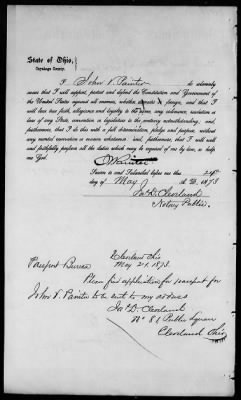 State of Ohio,
Cuyahoga County.
I John V. Painter do solemnly
swear that I will support, protect and defend the Constitution and Government of
the United States against all enemies, whether domestic or foreign, and that I
will bear true faith, allegiance and loyalty to the same, any ordinance, resolution or
law of any State, convention or legislature to the contrary notwithstanding; and,
furthermore, that I do this with a full determination, pledge and purpose, without
any mental reservation or evasion whatsoever; and, furthermore, that I will well
and faithfully perform all the duties which may be required of me by law, so help
me God.
J V Painter
Sworn to and Subscribed before me this
day of May A. D. 1873
Jas D. Cleveland
Notary Public.
Cleveland Ohio
May 21. 1873.
Passport Bureau
Please find application for passport for
John V. Painter to be sent to my address
Jas D. Cleveland
No 81 Public Square
Cleveland Ohio